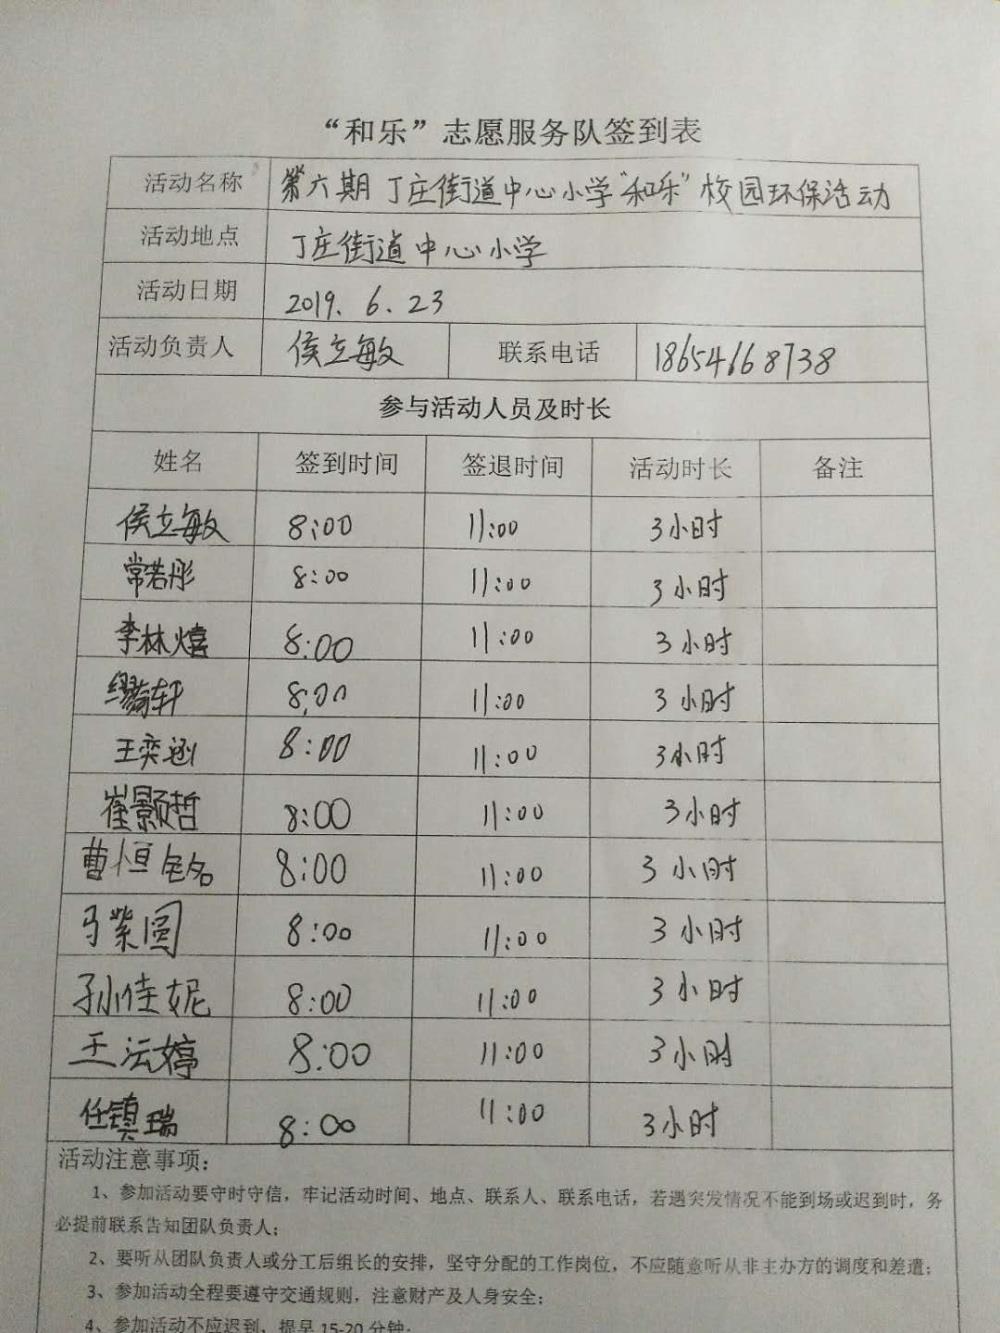 “和乐”志愿服务队签到表
活动名称 第六期丁庄街道中心小学“和乐”校园环保活动
活动地点 丁庄街道中心小学
活动日期 2019.6.23
活动负责人 侯立敏 联系电话 18654668738
参与活动人员及时长
姓名 签到时间 签退时间 活动时长 备注
侯立敏 8:00 11:00 3小时
常若彤 8:00 11:00 3小时
李林熺 8:00 11:00 3小时
8:00 11:00 3小时
王奕涵 8:00 11:00 3小时
崔颢哲 8:00 11:00 3小时
曹恒铭 8:00 11:00 3小时
马紫圆 8:00 11:00 3小时
孙佳妮 8:00 11:00 3小时
王沄婷 8:00 11:00 3小时
任镇瑞 8:00 11:00 3小时
活动注意事项：
1、参加活动要守时守信，牢记活动时间、地点、联系人、联系电话，若遇突发情况不能到场或迟到时，务
必提前联系告知团队负责人；
2、要听从团队负责人或分工后组长的安排，坚守分配的工作岗位，不应随意听从非主办方的调度和差遣；
3、参加活动全程要遵守交通规则，注意财产及人身安全；
4、参加活动不应迟到，提早15-20分钟；